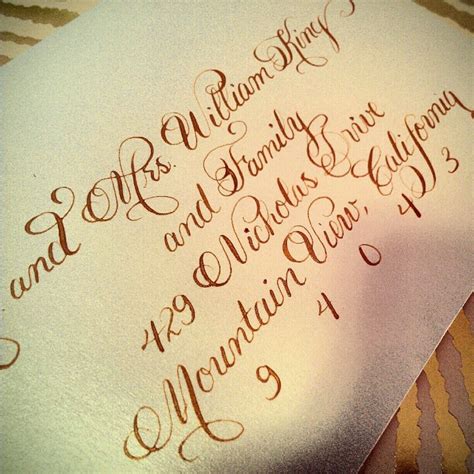 and Mrs. William King
and Family
429 Nicholas Drive
Mountain View, California
9 4 0 4 3